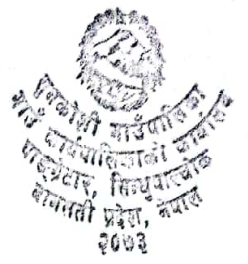 सुनकोशी गाउँपालिका
गाउँ कार्यपालिकाको कार्यालय
सिन्धुपाल्चोक
बागमती प्रदेश, नेपाल
२०७३